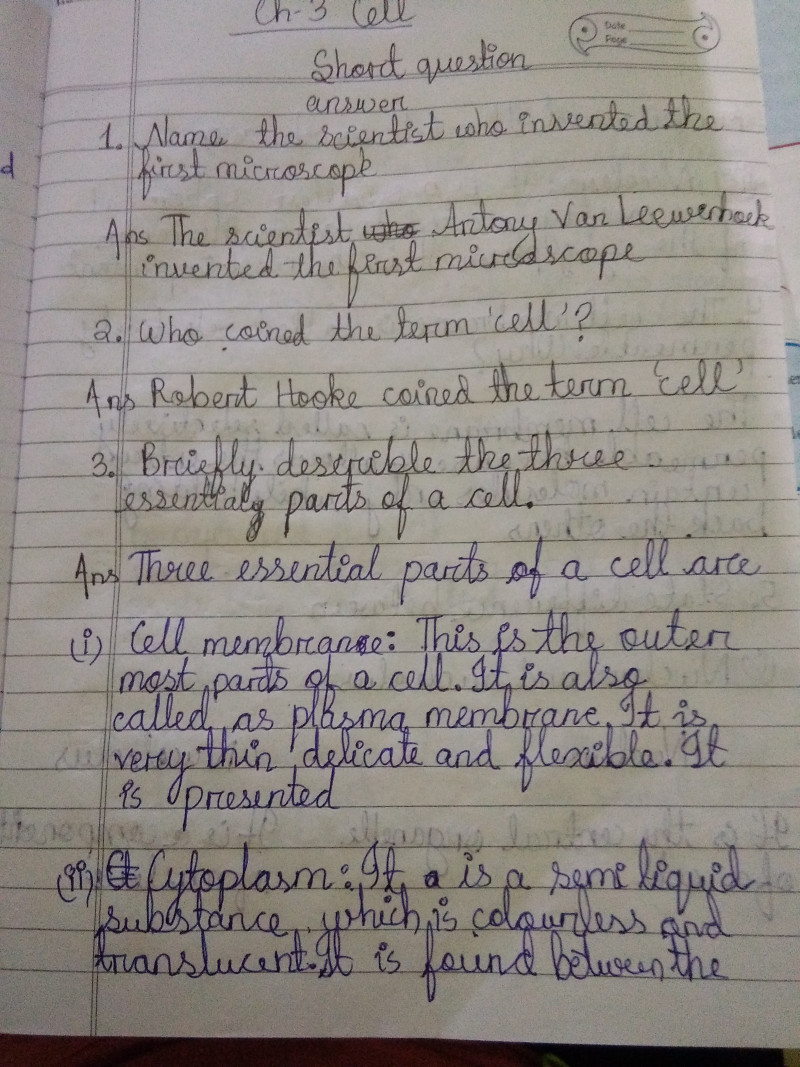 Ch-3 Cell
Date
Page
Short question
answer
1. Name the scientist who invented the
first microscope
Ans The scientist Antony Van Leewenhoek
invented the first microscope
2. Who coined the term 'cell'?
Ans Robert Hooke coined the term 'cell'
3. Briefly. describle the three
essentialy parts of a cell.
Ans Three essential parts of a cell are
(i) Cell membrane: This is the outer
most parts of a cell. It is also
called as plasma membrane. It is
very thin, delicate and flexible. It
is presented
(ii) Cytoplasm: It is a semi liquid
substance which is colourless and
translucent. It is found between the